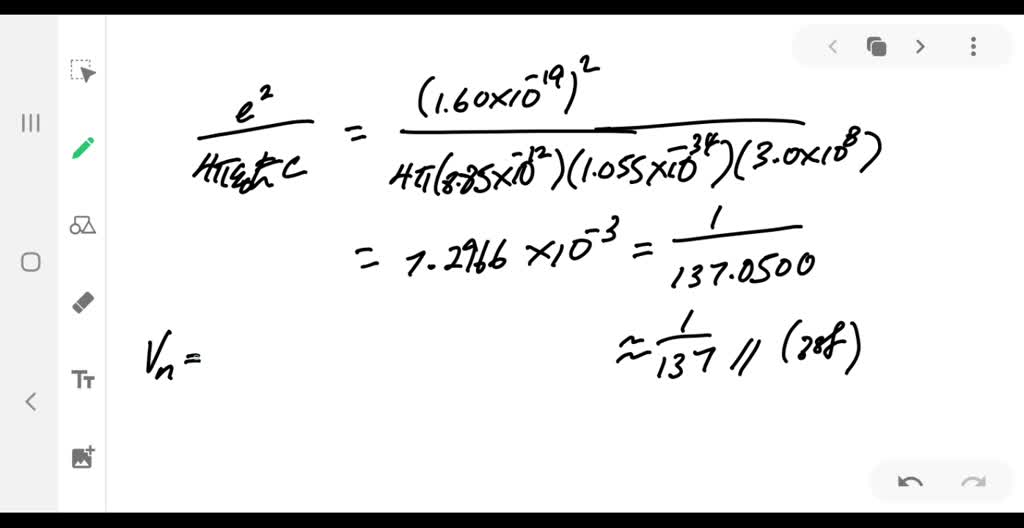 e² / 4πε₀ħc = (1.60×10⁻¹⁹)² / 4π(8.85×10⁻¹²)(1.055×10⁻³⁴)(3.0×10⁸)
= 7.2966 ×10⁻³ = 1 / 137.0500
≈ 1 / 137 // (3sf)
Vₙ =
Tт